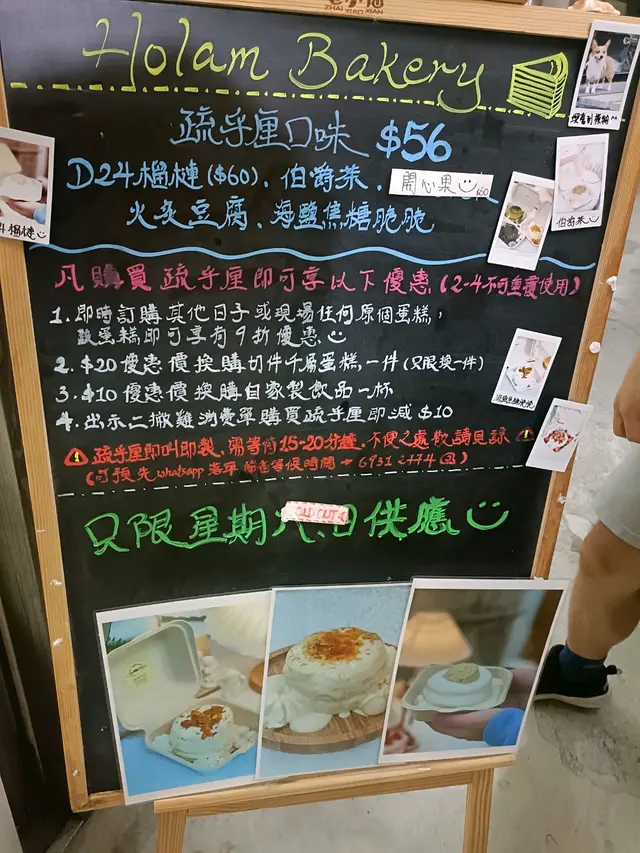 ZHAI XIAO XIAN
Holam Bakery
疏乎厘口味 $56
D24榴槤($60)、伯爵茶、開心果 $60
火炙豆腐、海鹽焦糖脆脆
伯爵茶
凡購買疏乎厘即可享以下優惠(2-4不可重覆使用)
1. 即時訂購其他日子或現場任何原個蛋糕，
蛋糕即可享有9折優惠
2. $20優惠價換購切件千層蛋糕一件(只限換一件)
3. $10優惠價換購自家製飲品一杯
4. 出示二撇雞消費單購買疏乎厘即減$10
疏乎厘即叫即製，需等待15-20分鐘，不便之處敬請見諒
(可預先whatsapp落單 節省等候時間 → 6931 2474)
只限星期六、日供應
SOLD OUT